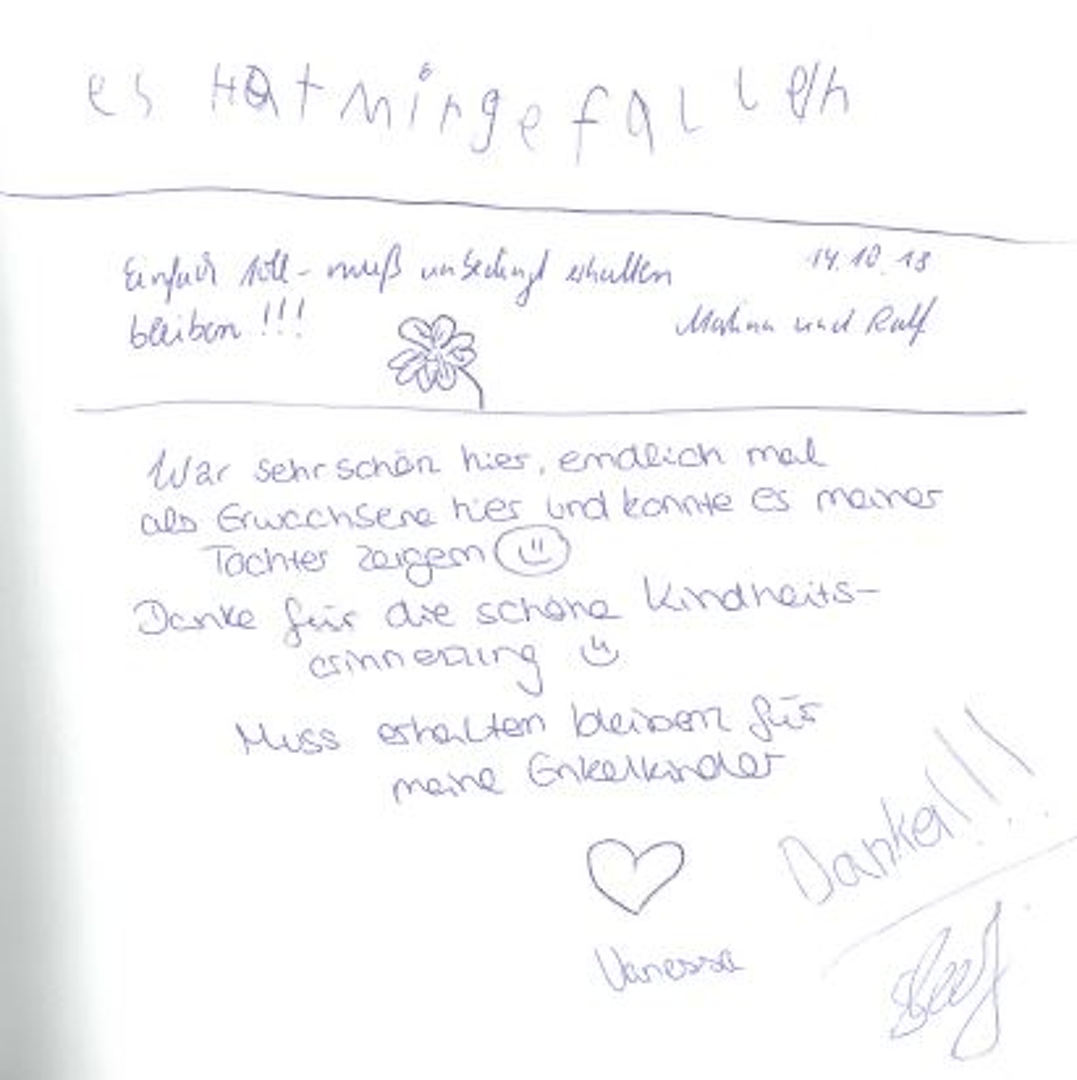 es HatMirgefallen
Einfach toll - muß unbedingt erhalten
bleiben !!!
14.10.18
und Ralf
War sehr schön hier, endlich mal
als Erwachsene hier und konnte es meiner
Tochter zeigen
Danke für die schöne Kindheits-
erinnerung
Muss erhalten bleiben für
meine Enkelkinder
Vanessa
Danke!!!